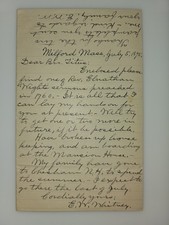 Milford Mass. July 5, 1872
Dear Bro. Titus,
Enclosed please
find one of Rev. Elnathan
Wight's sermons preached
in 176. It is all that I
can lay my hands on for
you at present - Will try
to get one or two more in
future, if it be possible.
Have broken up house
keeping, and am boarding
at the Mansion House.
My family have gone
to Chatham N.H. to spend
the summer - I expect to
go there the last of July.
Cordially yours,
E. H. Whitney.